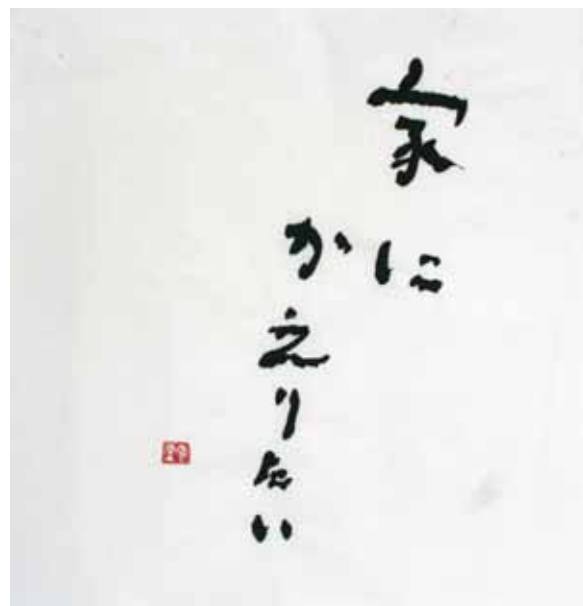 家に
かえりたい